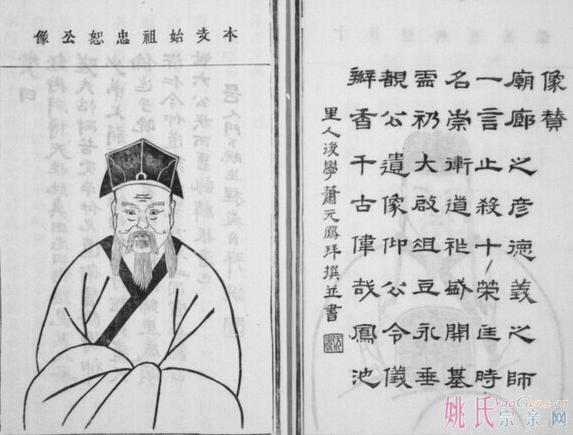 像贊
廟廊之彥德義之師
一言止殺十匡時
名崇衛道祚盛開基
礽大啟俎豆永垂
公遺像仰公令儀
瓣香千古偉哉鳳池
里人後學蕭元拜撰並書
本支始祖忠恕公像
姚氏
宗亲网